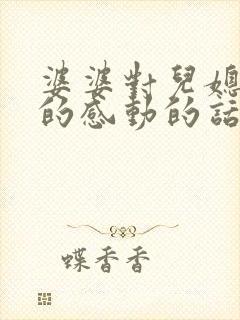 婆婆對兒媳
的感動的話
蝶香香